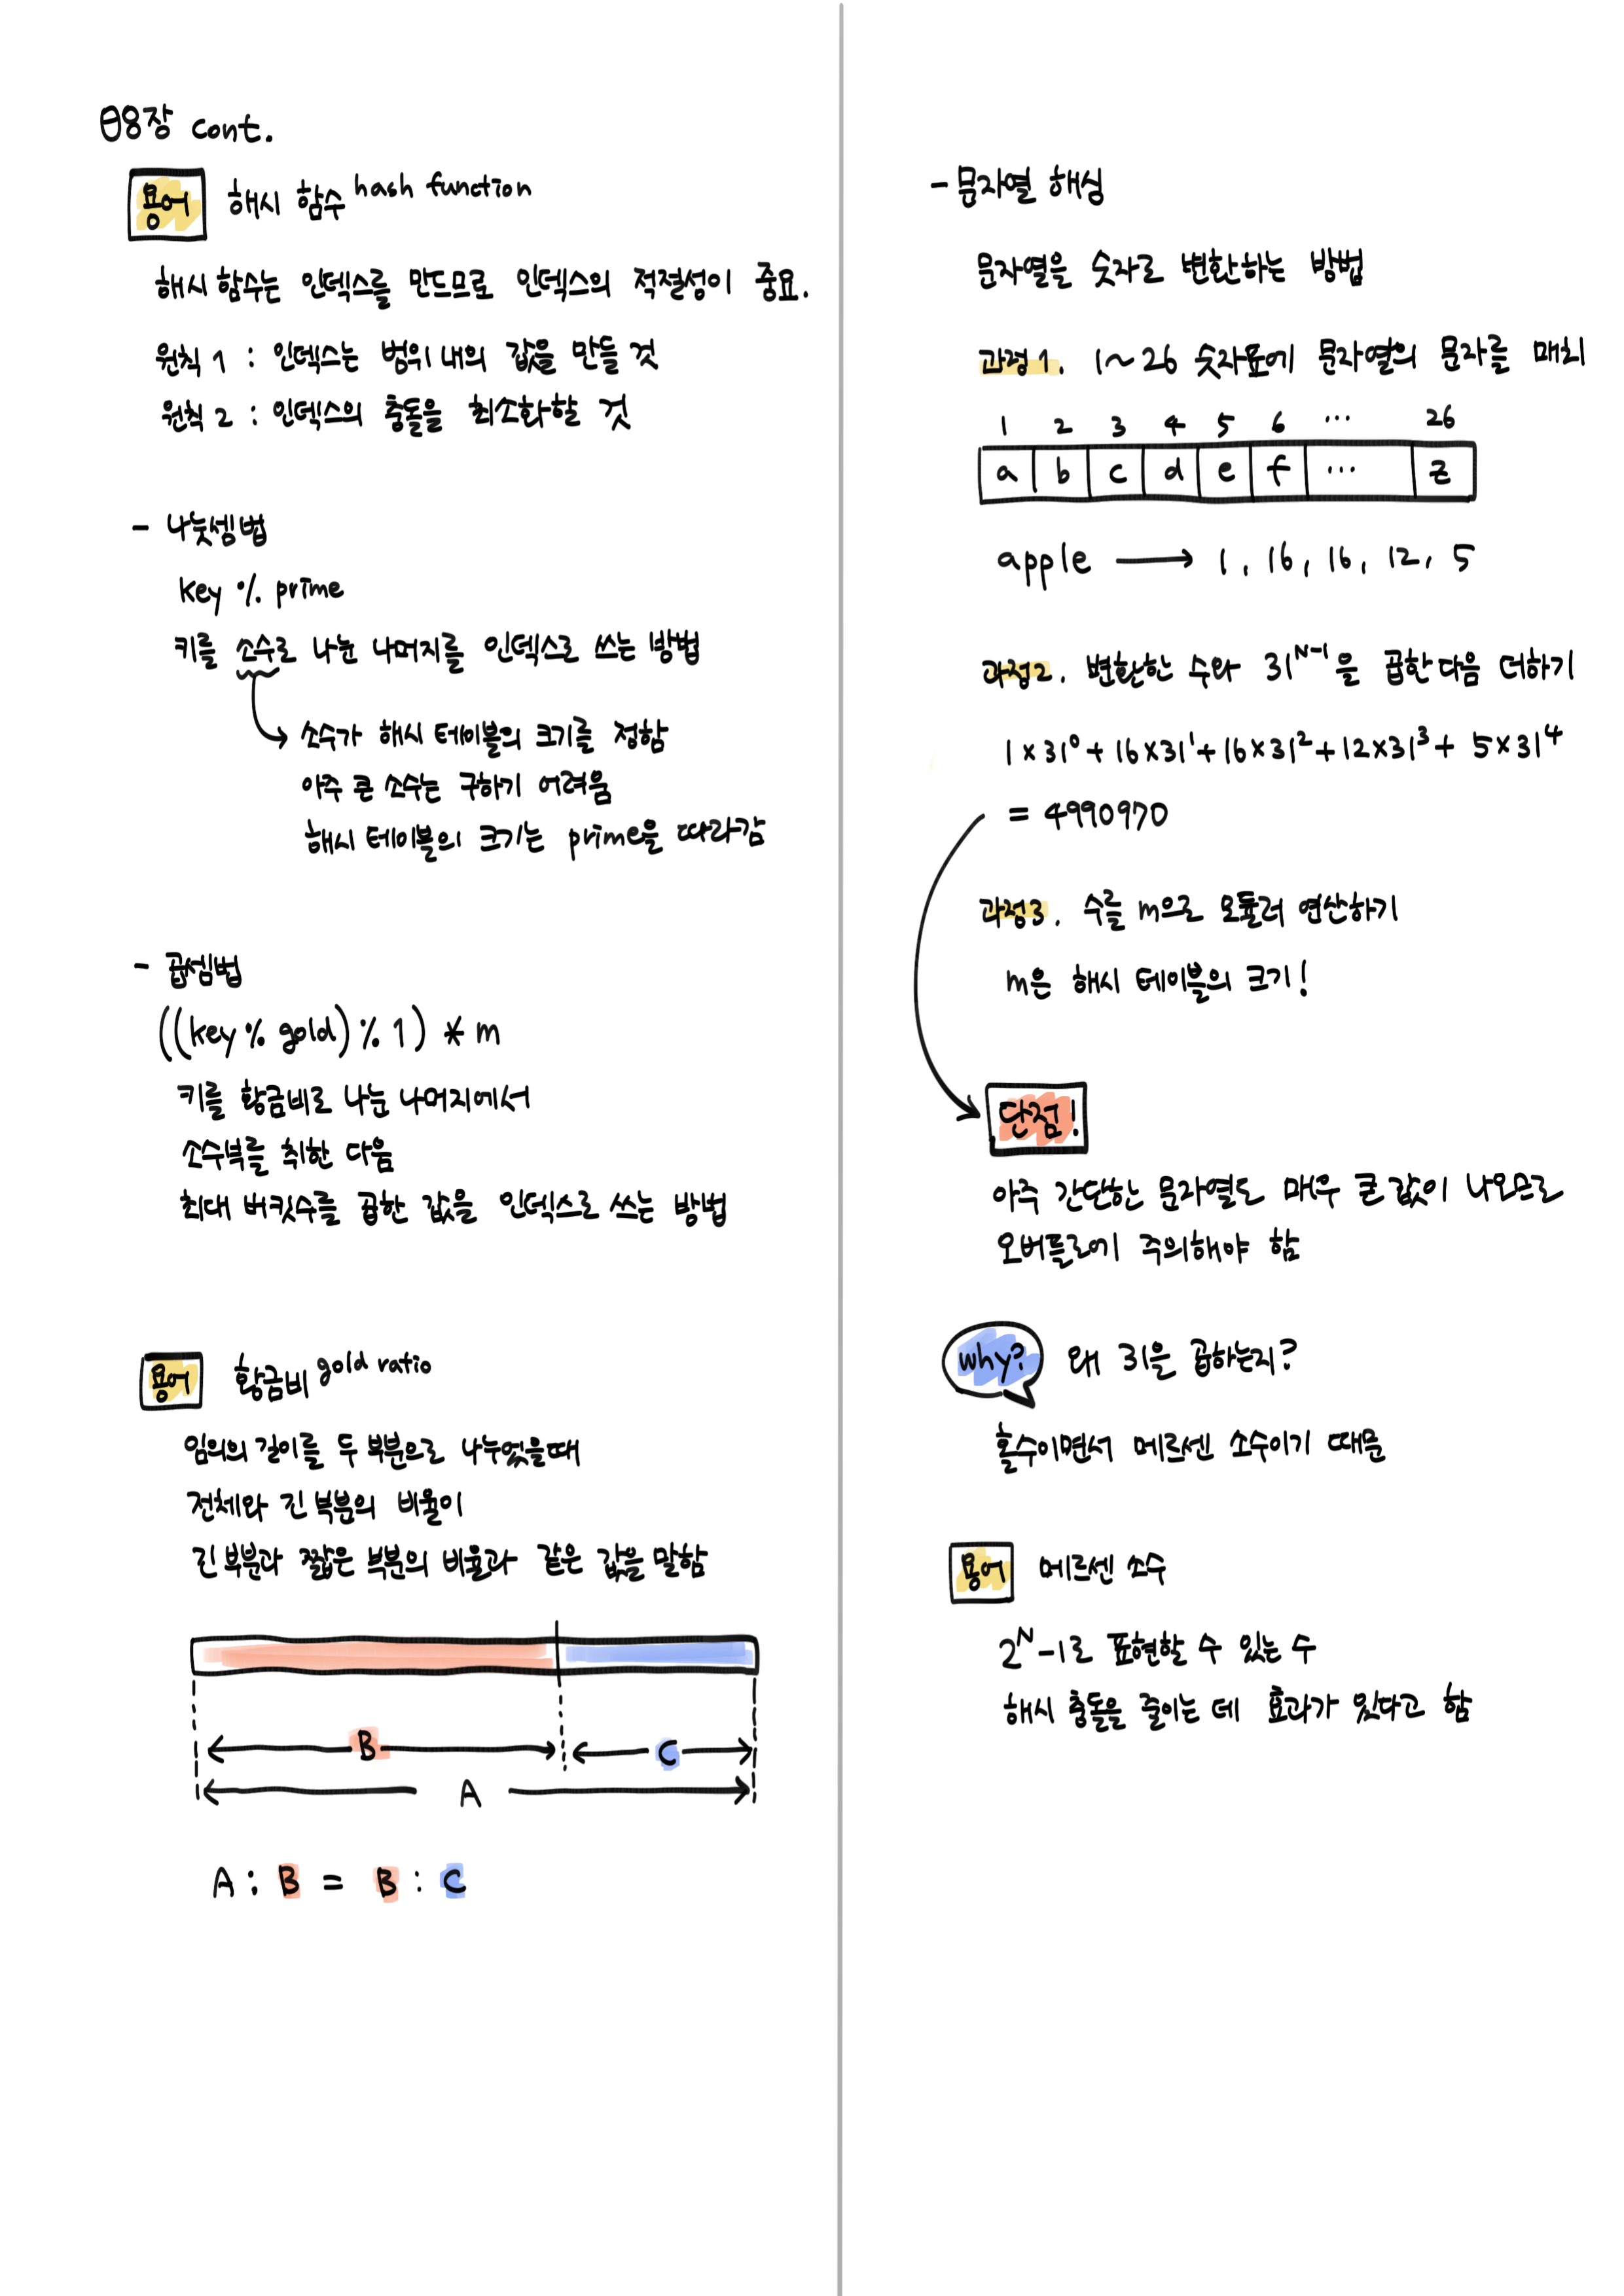 08장 cont.
용어 해시 함수 hash function
해시 함수는 인덱스를 만드므로 인덱스의 적절성이 중요.
원칙 1 : 인덱스는 범위 내의 값을 만들 것
원칙 2 : 인덱스의 충돌을 최소화할 것
- 나눗셈법
key % prime
키를 소수로 나눈 나머지를 인덱스로 쓰는 방법
소수가 해시 테이블의 크기를 정함
아주 큰 소수는 구하기 어려움
해시 테이블의 크기는 prime을 따라감
- 곱셈법
((key % gold) % 1) * m
키를 황금비로 나눈 나머지에서
소수부를 취한 다음
최대 버킷수를 곱한 값을 인덱스로 쓰는 방법
용어 황금비 gold ratio
임의의 길이를 두 부분으로 나누었을때
전체와 긴 부분의 비율이
긴 부분과 짧은 부분의 비율과 같은 값을 말함
B C
A
A : B = B : C
- 문자열 해싱
문자열을 숫자로 변환하는 방법
과정1. 1~26 숫자표에 문자열의 문자를 매치
1 2 3 4 5 6 ... 26
a b c d e f ... z
apple → 1, 16, 16, 12, 5
과정2. 변환한 수와 31^N-1을 곱한 다음 더하기
1×31⁰ + 16×31¹ + 16×31² + 12×31³ + 5×31⁴
= 4990970
과정3. 수를 m으로 모듈러 연산하기
m은 해시 테이블의 크기!
단점!
아주 간단한 문자열도 매우 큰 값이 나오므로
오버플로에 주의해야 함
why? 왜 31을 곱하는지?
홀수이면서 메르센 소수이기 때문
용어 메르센 소수
2^N-1로 표현할 수 있는 수
해시 충돌을 줄이는 데 효과가 있다고 함